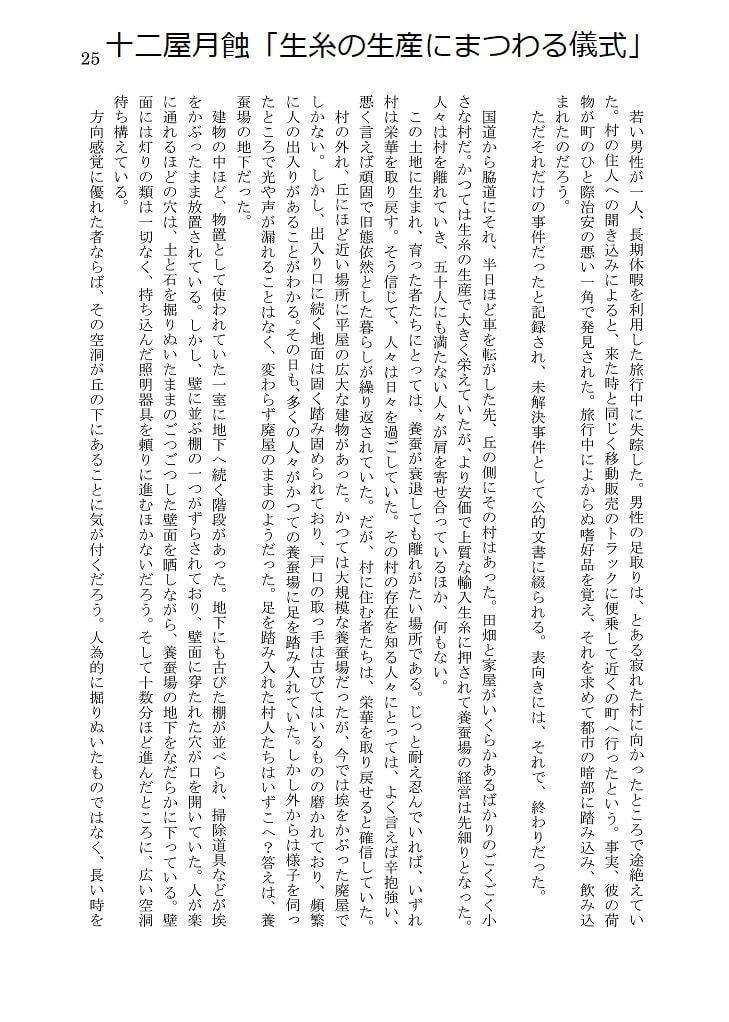 十二屋月蝕「生糸の生産にまつわる儀式」
25
　若い男性が一人、長期休暇を利用した旅行中に失踪した。男性の足取りは、とある寂れた村に向かったところで途絶えてい
た。村の住人への聞き込みによると、来た時と同じく移動販売のトラックに便乗して近くの町へ行ったという。事実、彼の荷
物が町のひと際治安の悪い一角で発見された。旅行中によからぬ嗜好品を覚え、それを求めて都市の暗部に踏み込み、飲み込
まれたのだろう。
　ただそれだけの事件だったと記録され、未解決事件として公的文書に綴られる。表向きには、それで、終わりだった。
　国道から脇道にそれ、半日ほど車を転がした先、丘の側にその村はあった。田畑と家屋がいくらかあるばかりのごくごく小
さな村だ。かつては生糸の生産で大きく栄えていたが、より安価で上質な輸入生糸に押されて養蚕場の経営は先細りとなった。
人々は村を離れていき、五十人にも満たない人々が肩を寄せ合っているほか、何もない。
　この土地に生まれ、育った者たちにとっては、養蚕が衰退しても離れがたい場所である。じっと耐え忍んでいれば、いずれ
村は栄華を取り戻す。そう信じて、人々は日々を過ごしていた。その村の存在を知る人々にとっては、よく言えば辛抱強い、
悪く言えば頑固で旧態依然とした暮らしが繰り返されていた。だが、村に住む者たちは、栄華を取り戻せると確信していた。
　村の外れ、丘にほど近い場所に平屋の広大な建物があった。かつては大規模な養蚕場だったが、今では埃をかぶった廃屋で
しかない。しかし、出入り口に続く地面は固く踏み固められており、戸口の取っ手は古びてはいるものの磨かれており、頻繁
に人の出入りがあることがわかる。その日も、多くの人々がかつての養蚕場に足を踏み入れていた。しかし外からは様子を伺っ
たところで光や声が漏れることはなく、変わらず廃屋のままのようだった。足を踏み入れた村人たちはいずこへ？答えは、養
蚕場の地下だった。
　建物の中ほど、物置として使われていた一室に地下へ続く階段があった。地下にも古びた棚が並べられ、掃除道具などが埃
をかぶったまま放置されている。しかし、壁に並ぶ棚の一つがずらされており、壁面に穿たれた穴が口を開いていた。人が楽
に通れるほどの穴は、土と石を掘りぬいたままのごつごつした壁面を晒しながら、養蚕場の地下をなだらかに下っている。壁
面には灯りの類は一切なく、持ち込んだ照明器具を頼りに進むほかないだろう。そして十数分ほど進んだところに、広い空洞
待ち構えている。
　方向感覚に優れた者ならば、その空洞が丘の下にあることに気が付くだろう。人為的に掘りぬいたものではなく、長い時を